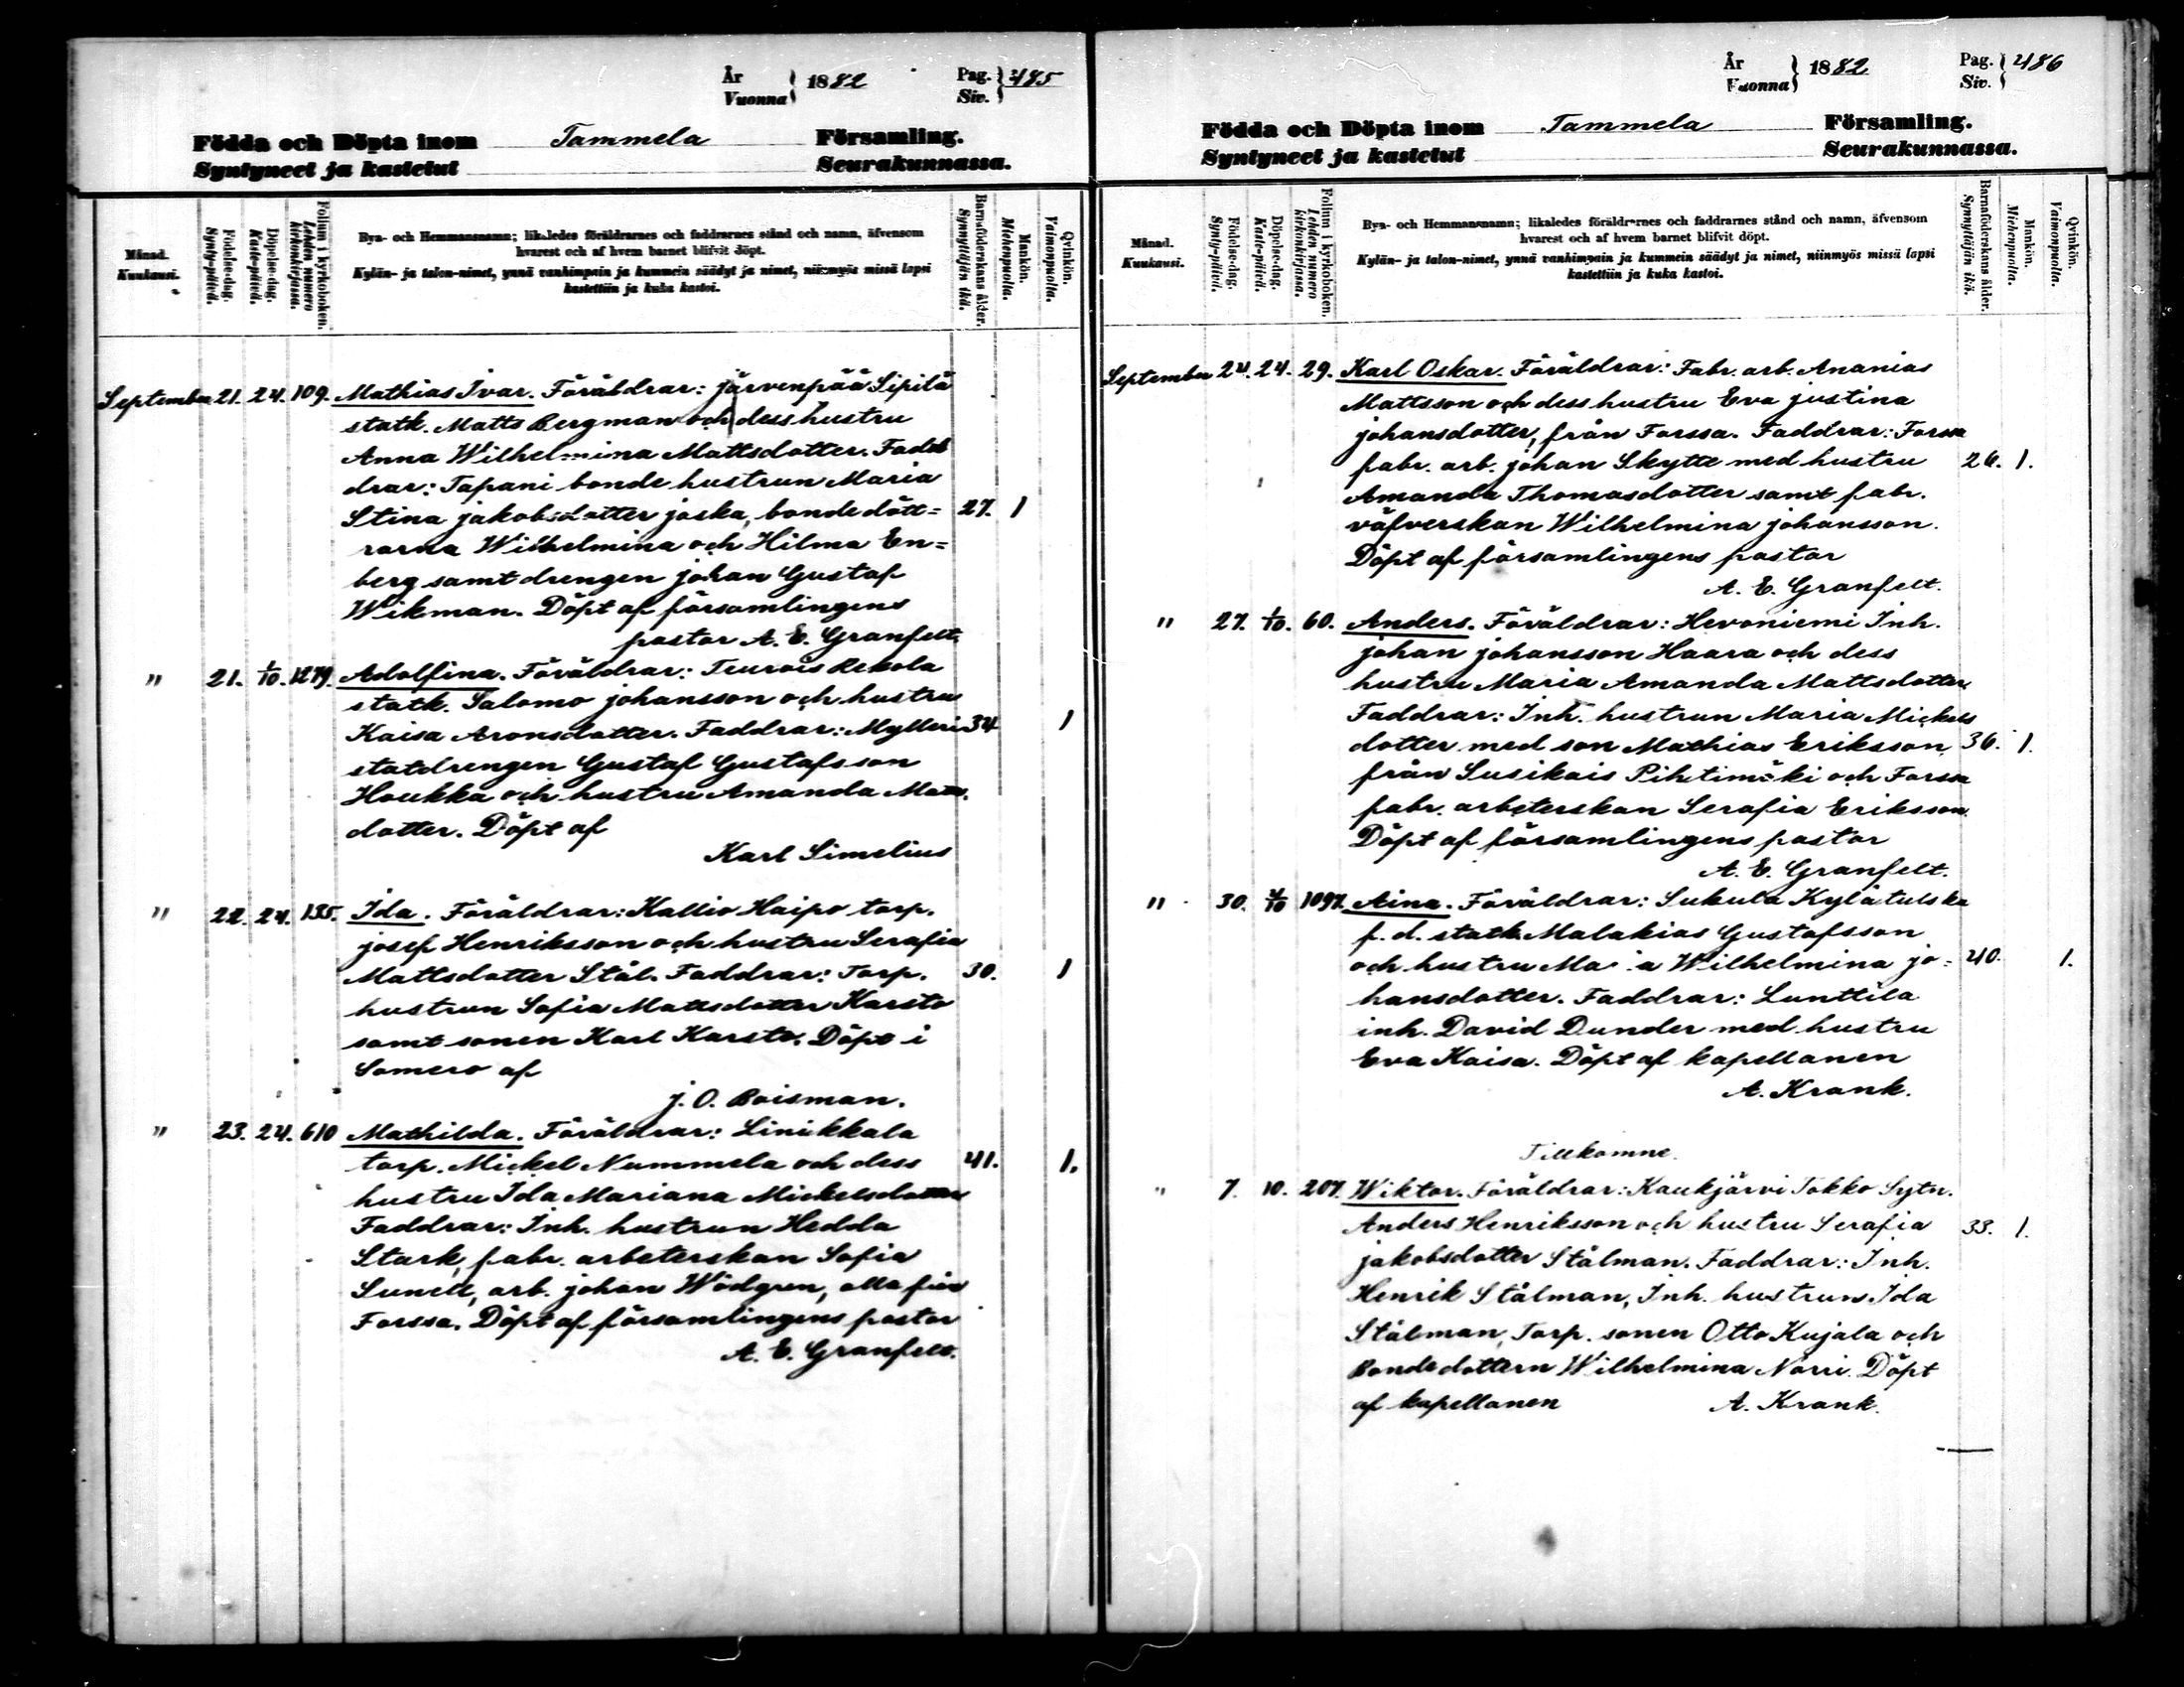 År
Vuonna } 1882
Pag.
Siv. } 485
Födda och Döpta inom Tammela Församling.
Syntyneet ja kastetut Seurakunnassa.
Månad.
Kuukausi.
Födelse-dag.
Synty-päivä.
Döpelse-dag.
Kaste-päivä.
Folium i kyrkoboken.
Lehden numero kirkonkirjassa.
Bya- och Hemmansnamn; likaledes föräldrarnes och faddrarnes stånd och namn, äfvensom
hvarest och af hvem barnet blifvit döpt.
Kylän- ja talon-nimet, ynnä vanhimpain ja kummein säädyt ja nimet, niinmyös missä lapsi
kastettiin ja kuka kastoi.
Barnaföderskans ålder.
Synnyttäjän ikä.
Mankön.
Miehenpuolta.
Qvinkön.
Vaimonpuolta.
September 21. 24. 109. Mathias Ivar. Föräldrar: järvenpää Sipilä
statk. Matts Bergman och dess hustru
Anna Wilhelmina Mattsdotter. Fad
drar: Tapani bonde hustrun Maria
Stina jakobsdotter joska, bonde dött= 27. 1
rarna Wilhelmina och Hilma En=
berg samt drengen johan Gustaf
Wikman. Döpt af församlingens
pastor A. E. Granfelt.
" 21. 1/10. 1279. Adolfina. Föräldrar: Teurois Rekola
statk. Salomo johansson och hustru
Kaisa Aronsdotter. Faddrar: Mylleri 34 1
statdrengen Gustaf Gustafsson
Houkka och hustru Amanda Matts
dotter. Döpt af
Karl Simelius
" 22. 24. 135. Ida. Föräldrar: Kallio Haipo torp.
josef Henriksson och hustru Serafia
Mattsdotter Stål. Faddrar: Torp. 30. 1
hustrun Sofia Mattsdotter Karsto
samt sonen Karl Karsto. Döpt i
Somero af
j. O. Boisman.
" 23. 24. 610 Mathilda. Föräldrar: Linikkala
torp. Mickel Nummela och dess 41. 1.
hustru Ida Mariana Mickelsdotter
Faddrar: Inh. hustrun Hedda
Stark, fabr. arbeterskan Sofia
Sunell, arb. johan Wadgren, alla från
Forssa. Döpt af församlingens pastor
A. E. Granfelt.
År
Vuonna } 1882
Pag.
Siv. } 486
Födda och Döpta inom Tammela Församling.
Syntyneet ja kastetut Seurakunnassa.
Månad.
Kuukausi.
Födelse-dag.
Synty-päivä.
Döpelse-dag.
Kaste-päivä.
Folium i kyrkoboken.
Lehden numero kirkonkirjassa.
Bya- och Hemmansnamn; likaledes föräldrarnes och faddrarnes stånd och namn, äfvensom
hvarest och af hvem barnet blifvit döpt.
Kylän- ja talon-nimet, ynnä vanhimpain ja kummein säädyt ja nimet, niinmyös missä lapsi
kastettiin ja kuka kastoi.
Barnaföderskans ålder.
Synnyttäjän ikä.
Mankön.
Miehenpuolta.
Qvinkön.
Vaimonpuolta.
September 24. 24. 29. Karl Oskar. Föräldrar: Fabr. arb. Ananias
Mattsson och dess hustru Eva justina
johansdotter, från Forssa. Faddrar: Forssa
fabr. arb. johan Skytte med hustru 26. 1.
Amanda Thomasdotter samt fabr.
väfverskan Wilhelmina johansson.
Döpt af församlingens pastor
A. E. Granfelt.
" 27. 1/10. 60. Anders. Föräldrar: Hevoniemi Inh.
johan johansson Haara och dess
hustru Maria Amanda Mattsdotter
Faddrar: Inh. hustrun Maria Mickels
dotter med son Mathias Eriksson 36. 1.
från Susikais Pihtimäki och Forssa
fabr. arbeterskan Serafia Eriksson.
Döpt af församlingens pastor
A. E. Granfelt.
" 30. /10 1097. Aina. Föräldrar: Sukula Kylätulska
f. d. statk. Malakias Gustafsson
och hustru Ma a Wilhelmina jo= 40. 1.
hansdotter. Faddrar: Lunttila
inh. David Dunder med hustru
Eva Kaisa. Döpt af kapellanen
A. Krank.
Tillkomne.
" 7. 10. 207. Wiktor. Föräldrar: Kaukjärvi Tokko Sytn.
Anders Henriksson och hustru Serafia 33. 1.
jakobsdotter Stålman. Faddrar: Inh.
Henrik Stålman, Inh. hustrun Ida
Stålman, Torp. sonen Otto Kujala och
Bondedottern Wilhelmina Norri. Döpt
af kapellanen A. Krank.